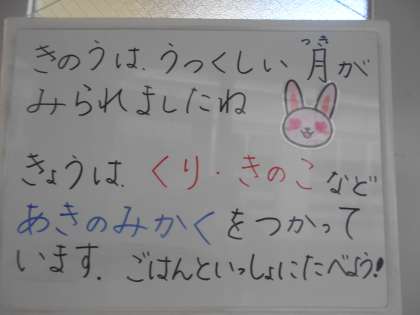 きのうは、うつくしい月が
つき
みられましたね
きょうは、くり・きのこなど
あきのみかくをつかって
います。ごはんといっしょにたべよう!